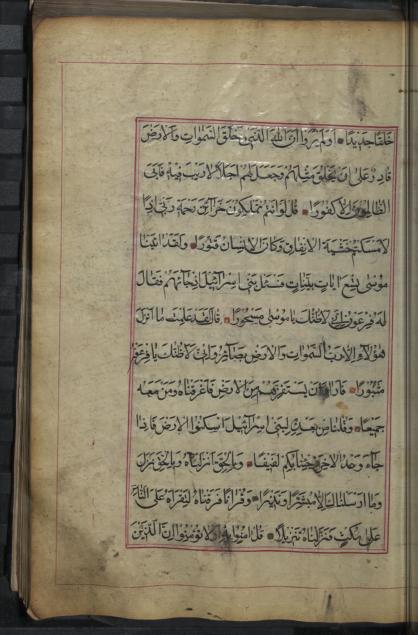 خلقا جديدا اولم يروا ان الله الذي خلق السموات والارض
قادر على ان يخلق مثلهم وجعل لهم اجلا لاريب فيه فابى
الظالمون الا كفورا قل لو انتم تملكون خزائن رحمة ربي اذا
لامسكتم خشية الانفاق وكان الانسان قتورا ولقد اتينا
موسى تسع ايات بينات فسئل بني اسرائيل اذ جائهم فقال
له فرعون اني لاظنك يا موسى مسحورا قال لقد علمت ما انزل
هؤلاء الا رب السموات والارض بصائر واني لاظنك يا فرعون
مثبورا فاراد ان يستفزهم من الارض فاغرقناه ومن معه
جميعا وقلنا من بعده لبني اسرائيل اسكنوا الارض فاذا
جاء وعد الاخرة جئنا بكم لفيفا وبالحق انزلناه وبالحق نزل
وما ارسلناك الا مبشرا ونذيرا وقرانا فرقناه لتقراه على الناس
على مكث ونزلناه تنزيلا قل امنوا به او لا تؤمنوا ان الذين